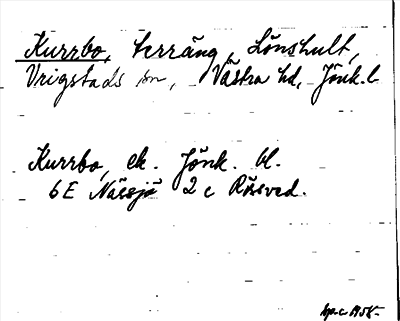 Kurrbo, terräng, Lönshult,
Vrigstads sn, Västra hd, Jönk. l.
Kurrbo, ek. Jönk. bl.
6E Nässjö 2 c Rösved.